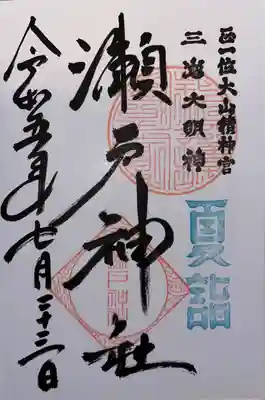 正一位大山積神宮
三嶋大明神
夏詣
瀬戸神社
令和五年七月二十三日